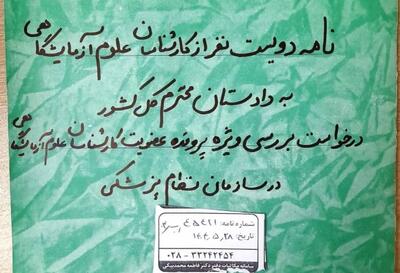 نامه دویست نفر از کارشناسان علوم آزمایشگاهی
به دادستان محترم کل کشور
درخواست بررسی ویژه پرونده عضویت کارشناسان علوم آزمایشگاهی
در سازمان نظام پزشکی
شماره نامه: ۴۵۴۲۱
تاریخ: ۱۴۰۴/۵/۲۸
۰۲۸ - ۳۳۲۴۲۴۵۴
سامانه مکاتبات دفتر دکتر فاطمه محمدبیگی